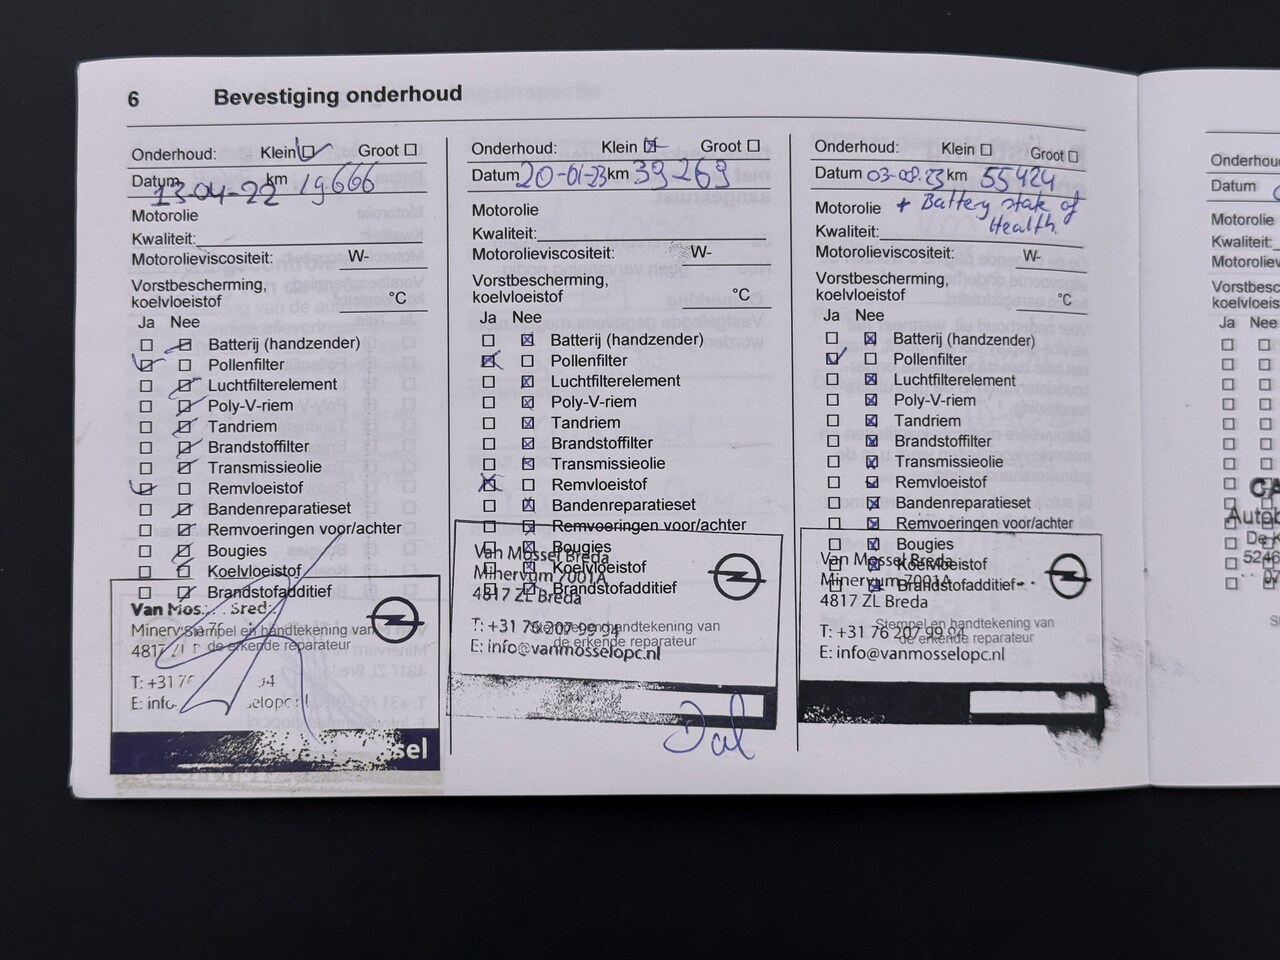 6 Bevestiging onderhoud
Onderhoud: Klein Groot
Datum 13-04-22 km 19666
Motorolie
Kwaliteit:
Motorolieviscositeit: W-
Vorstbescherming,
koelvloeistof °C
Ja Nee
Batterij (handzender)
Pollenfilter
Luchtfilterelement
Poly-V-riem
Tandriem
Brandstoffilter
Transmissieolie
Remvloeistof
Bandenreparatieset
Remvoeringen voor/achter
Bougies
Koelvloeistof
Brandstofadditief
Van Mos Breda
Stempel en handtekening van
de erkende reparateur
4817
T: +31 76
E: info
sel
Onderhoud: Klein Groot
Datum 20-01-23 km 39-269
Motorolie
Kwaliteit:
Motorolieviscositeit: W-
Vorstbescherming,
koelvloeistof °C
Ja Nee
Batterij (handzender)
Pollenfilter
Luchtfilterelement
Poly-V-riem
Tandriem
Brandstoffilter
Transmissieolie
Remvloeistof
Bandenreparatieset
Remvoeringen voor/achter
Bougies
Koelvloeistof
Brandstofadditief
Van Mossel Breda
Minervum 7001A
4817 ZL Breda
Stempel en handtekening van
de erkende reparateur
T: +31 76 207 99 94
E: info@vanmosselopc.nl
Onderhoud: Klein Groot
Datum 03-08-23 km 55424
Motorolie + Battery state of
Health.
Kwaliteit:
Motorolieviscositeit: W-
Vorstbescherming,
koelvloeistof °C
Ja Nee
Batterij (handzender)
Pollenfilter
Luchtfilterelement
Poly-V-riem
Tandriem
Brandstoffilter
Transmissieolie
Remvloeistof
Bandenreparatieset
Remvoeringen voor/achter
Bougies
Koelvloeistof
Brandstofadditief
Van Mossel Breda
Minervum 7001A
4817 ZL Breda
Stempel en handtekening van
de erkende reparateur
T: +31 76 207 99 94
E: info@vanmosselopc.nl
Onderhou
Datum
Motorolie
Kwaliteit:
Motoroliev
Vorstbesc
koelvloeis
Ja Nee
CA
Autob
De K
5246